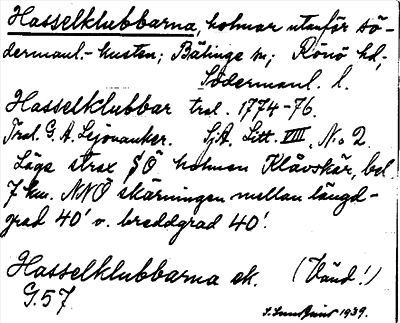 Hasselklubbarna, holmar utanför sö-
dermanl.-kusten; Bälinge sn; Rönö hd,
Södermanl. l.
Hasselklubbar trol. 1774-76.
Trol. G. A. Lejonanker. SjA. Litt. VIII, No 2
Läge strax SÖ holmen Klåvskär, bel.
7 km. NNO skärningen mellan längd-
grad 40' o. breddgrad 40'.
Hasselklubbarna ek. (Vänd!)
G.57
1939.